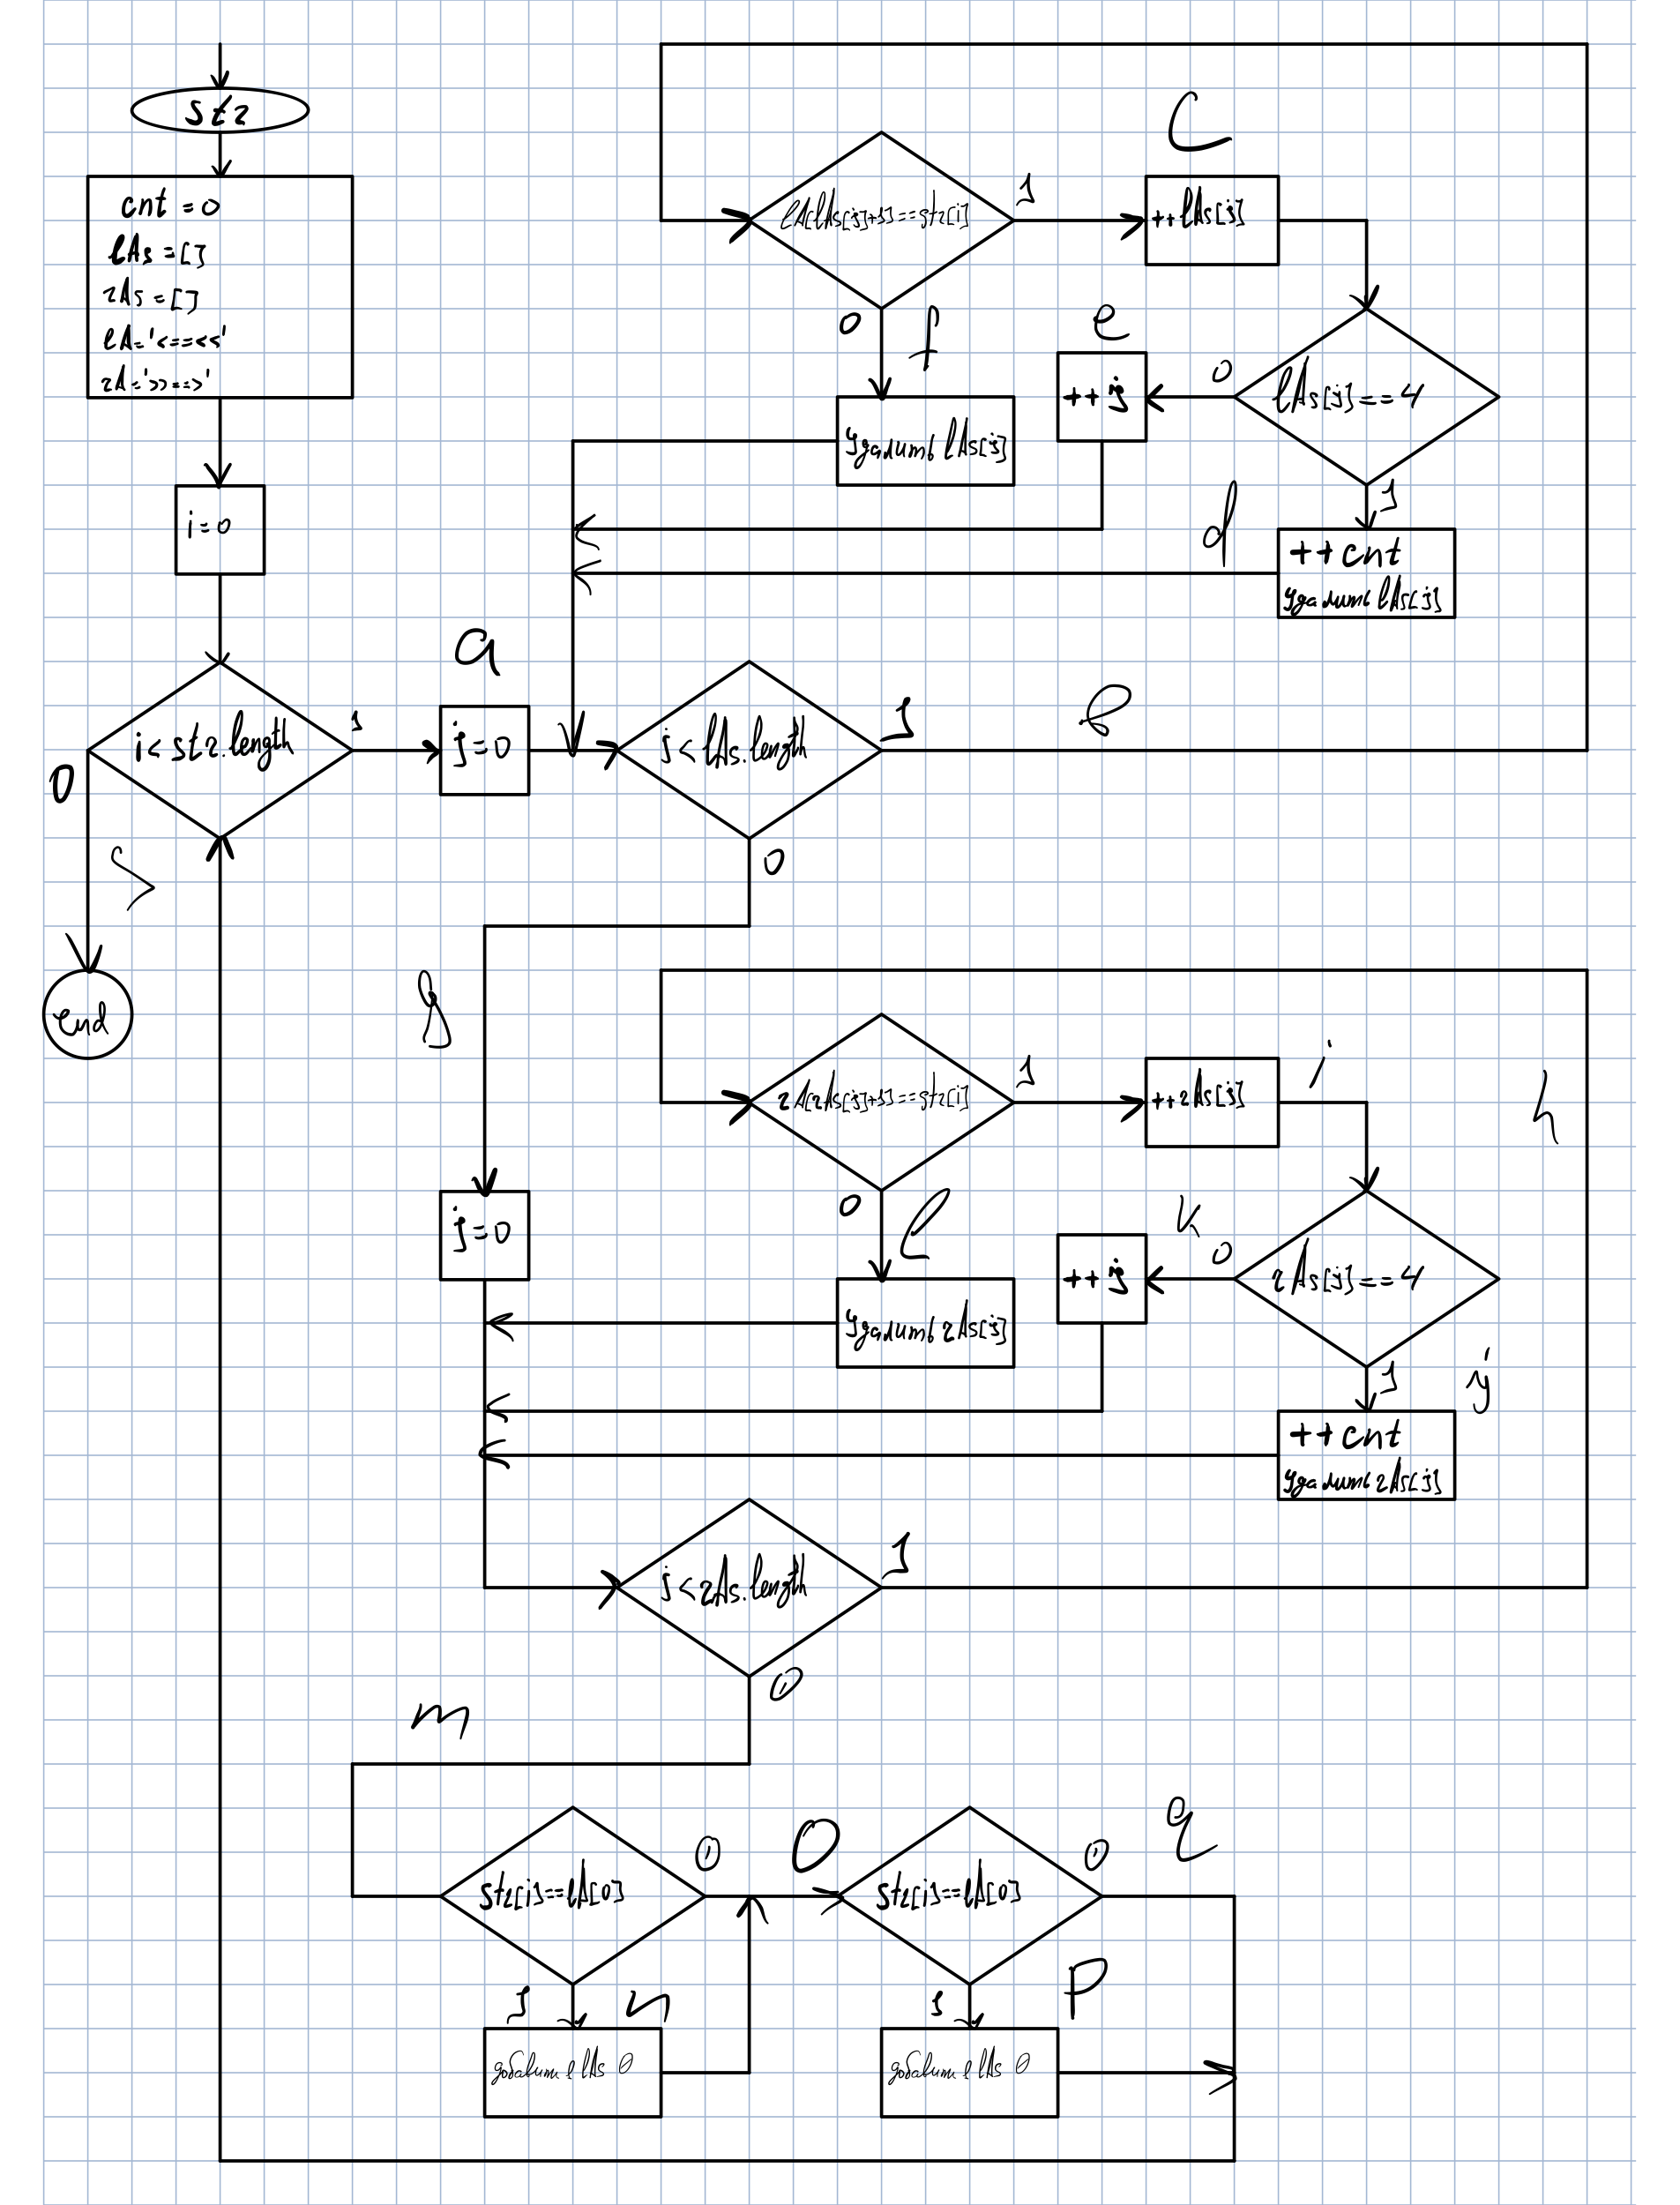 str
cnt = 0
lAs = []
rAs = []
lA='<==<<'
rA='>>==>'
i=0
i < str.length
1
0
s
end
a
j=0
j < lAs.length
1
0
b
lA[lAs[j]+1]==str[i]
1
0
c
++lAs[j]
f
Удалить lAs[j]
lAs[j]==4
0
1
e
++j
d
++cnt
Удалить lAs[j]
g
j=0
rA[rAs[j]+1]==str[i]
1
0
i
++rAs[j]
h
l
Удалить rAs[j]
rAs[j]==4
0
1
k
++j
j
++cnt
Удалить rAs[j]
j < rAs.length
1
0
m
str[i]==lA[0]
0
1
n
добавить в lAs 0
o
str[i]==lA[0]
0
1
q
p
добавить в lAs 0